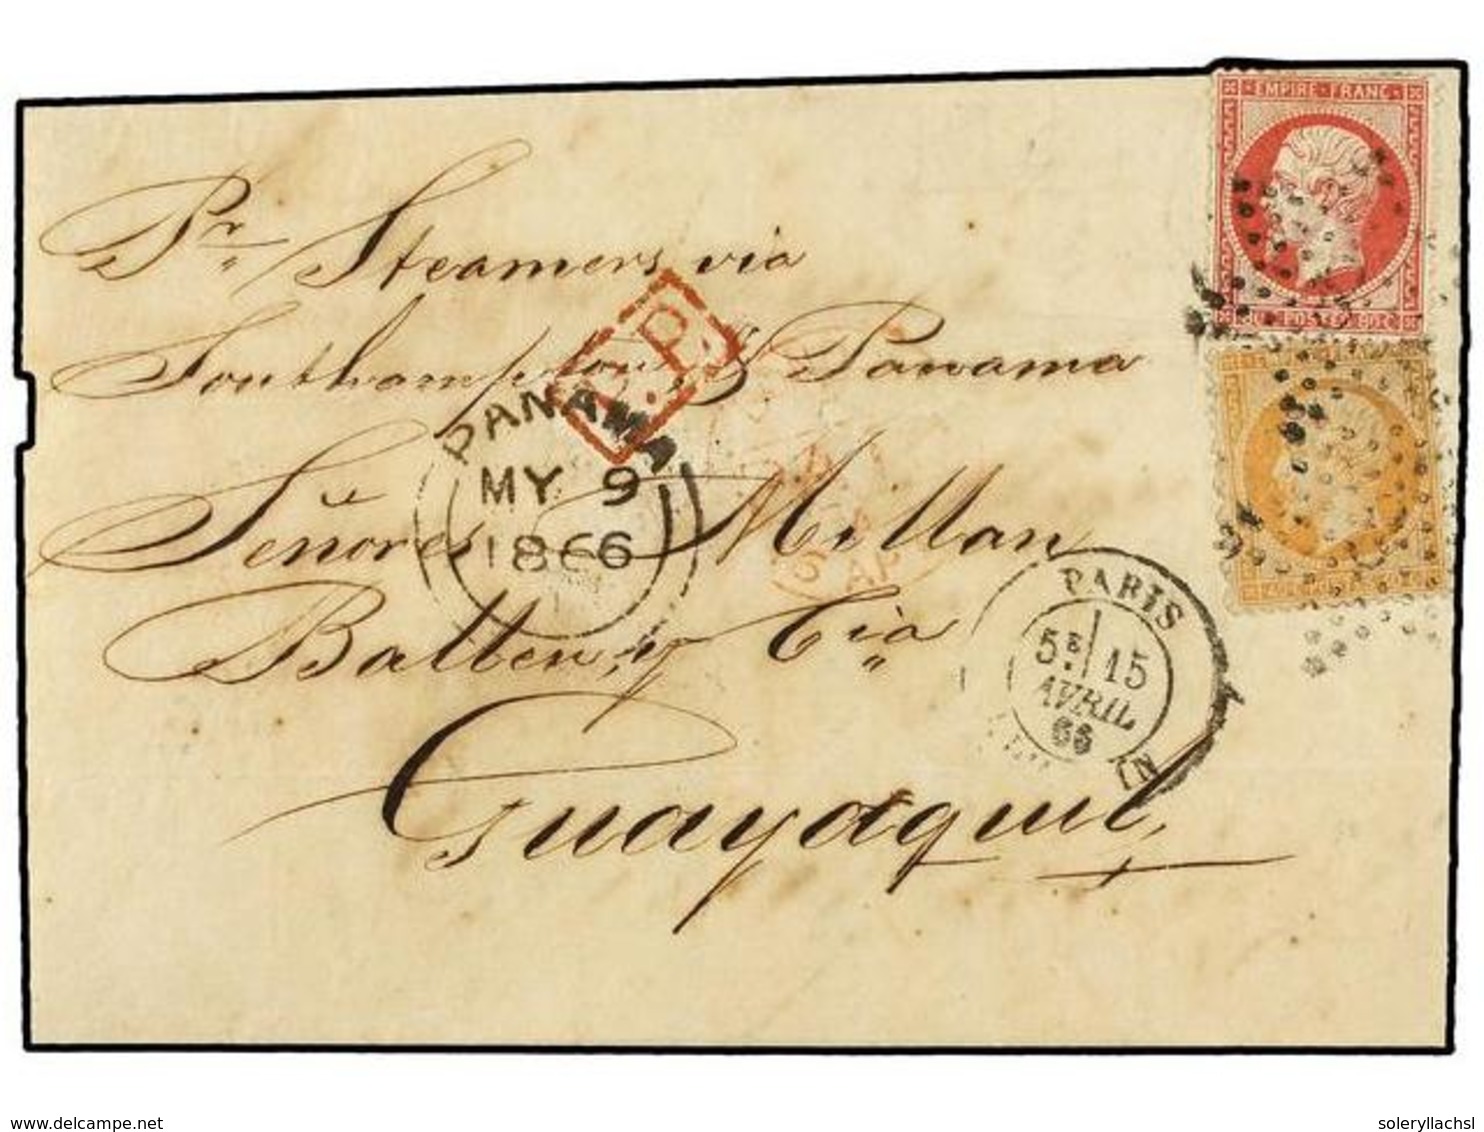 EMPIRE FRANC
POSTES 80 C
Pr. Steamers via
Southampton & Panama
P.P.
PANAMA
MY 9
1866
Señores Millan
Ballen y Cia
Guayaquil,
PARIS
5E 15
AVRIL
66
delcampe.net
soleryllachsl